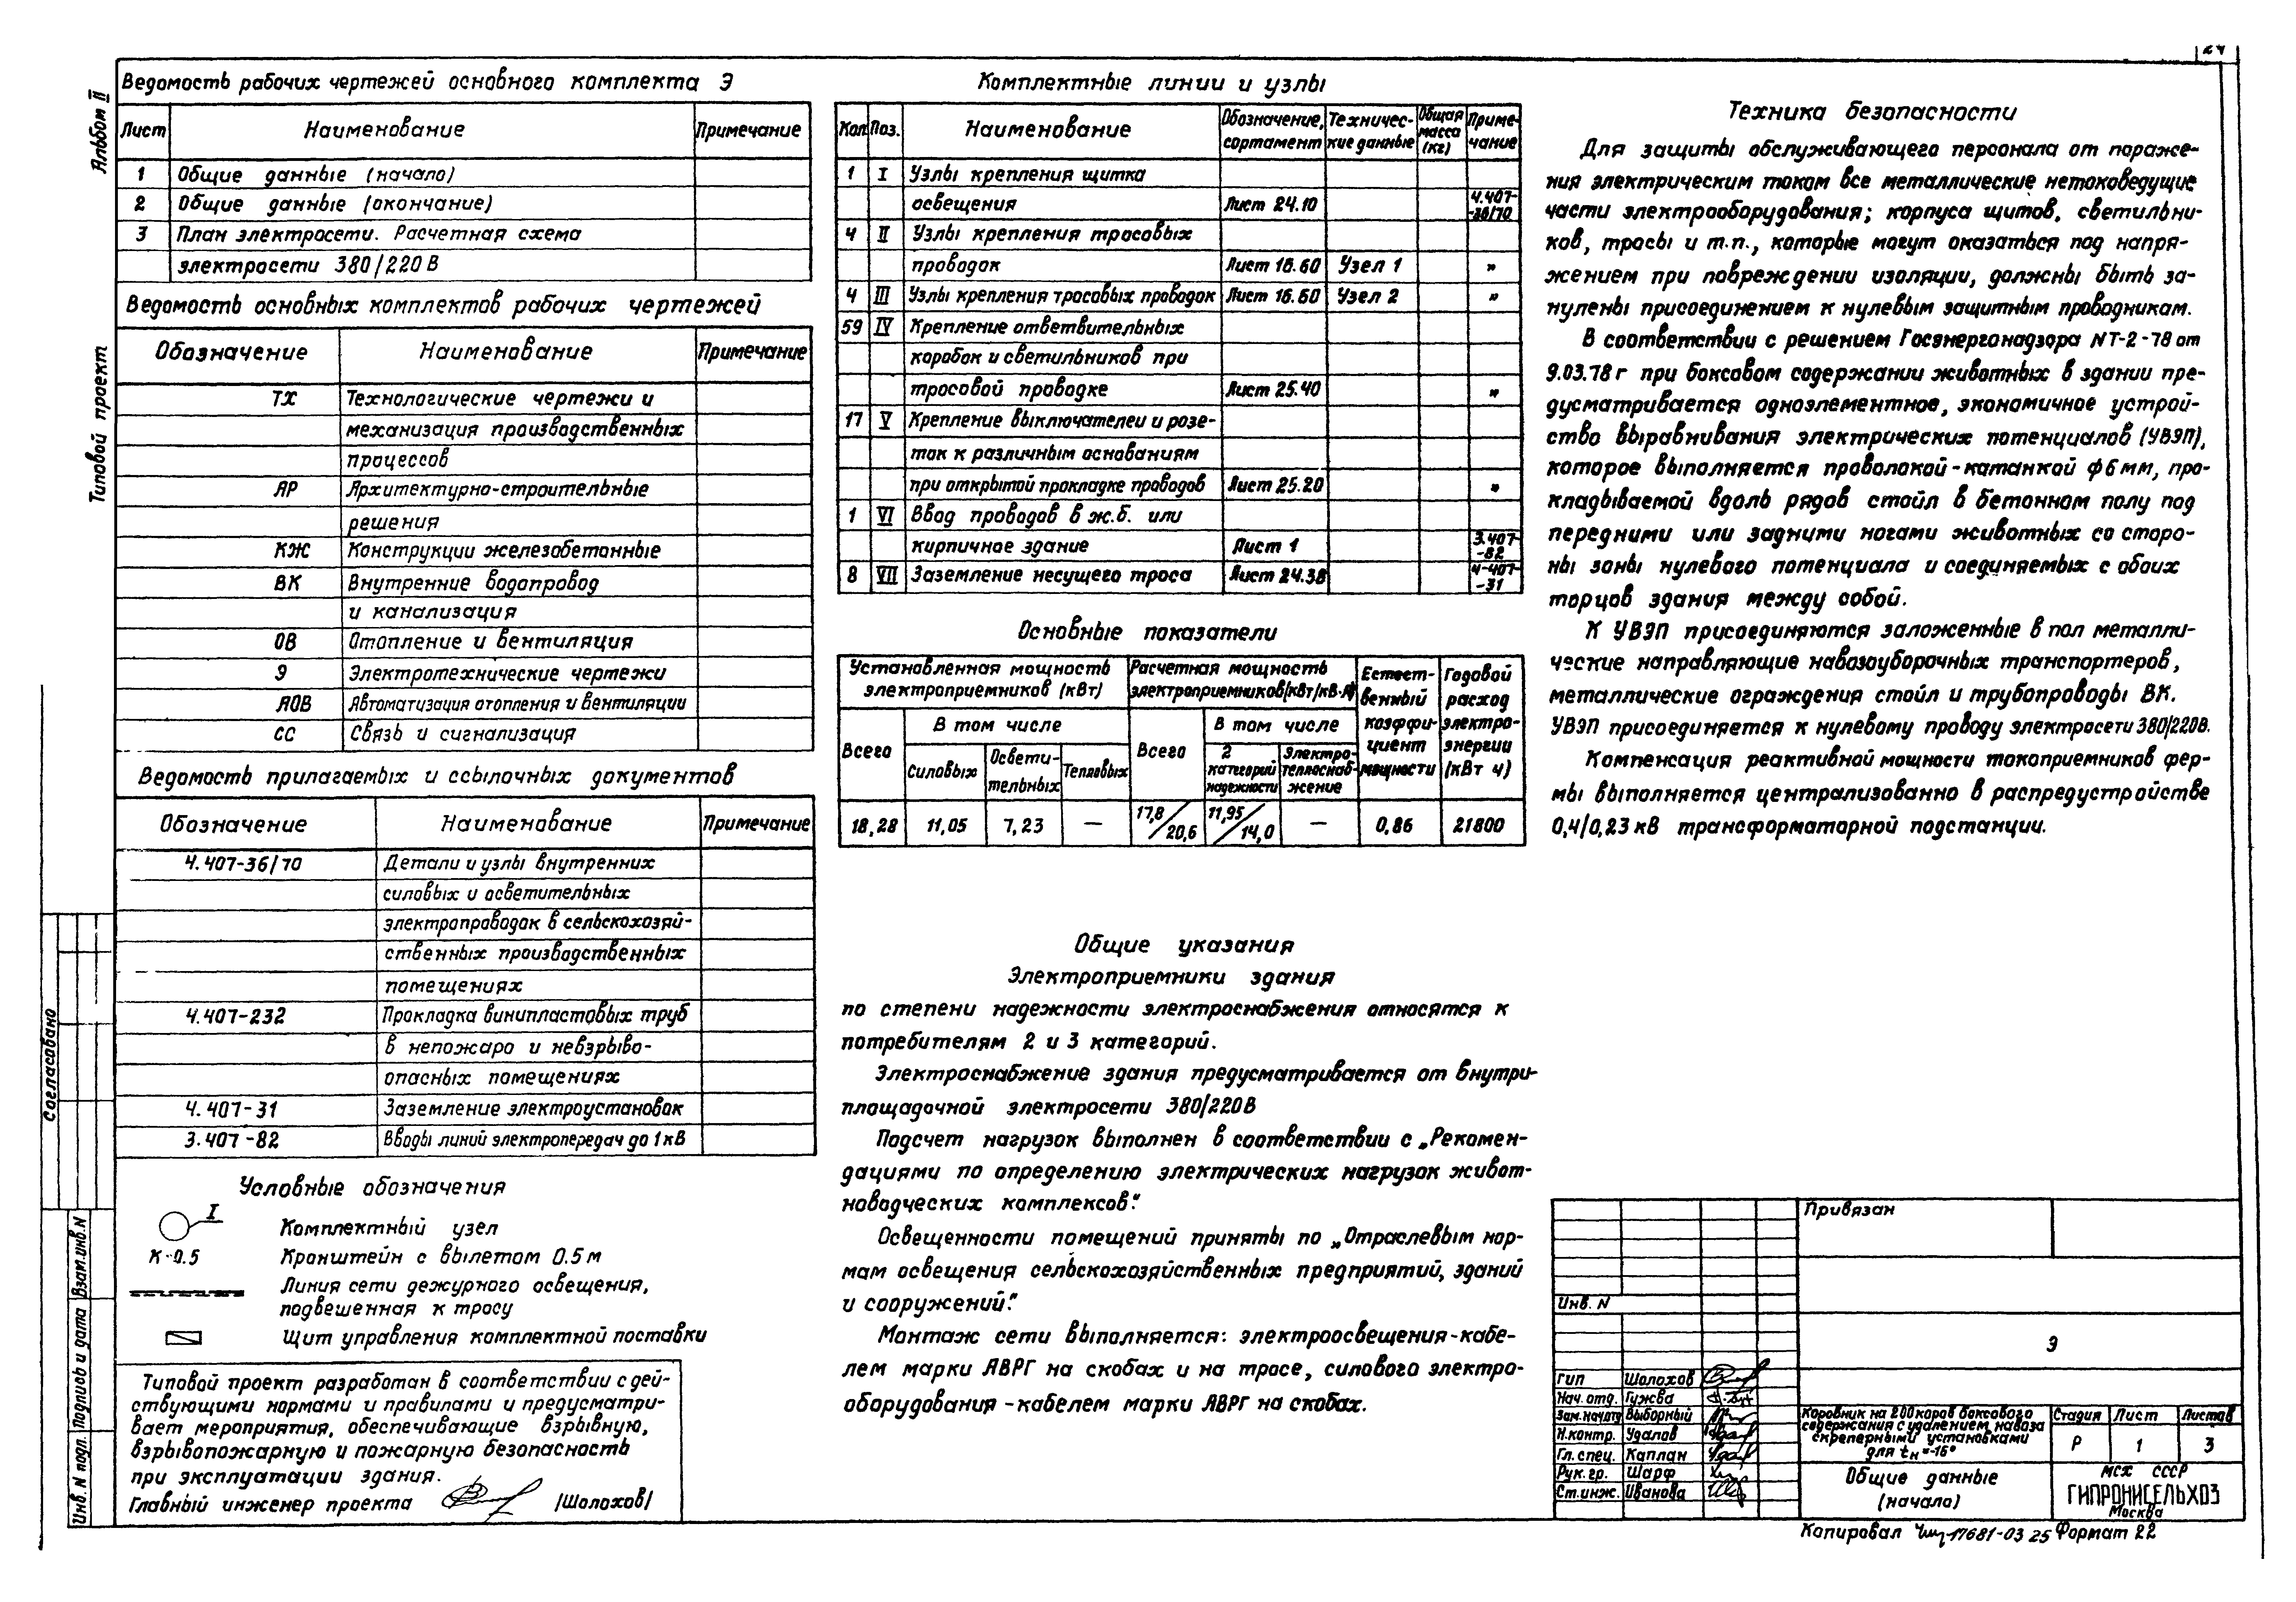 24
Альбом II
Типовой проект
Согласовано
Взам.инв.N
Подпись и дата
Инв. N подл.
Ведомость рабочих чертежей основного комплекта Э
Лист Наименование Примечание
1 Общие данные (начало)
2 Общие данные (окончание)
3 План электросети. Расчетная схема
электросети 380/220 В
Ведомость основных комплектов рабочих чертежей
Обозначение Наименование Примечание
ТХ Технологические чертежи и
механизация производственных
процессов
АР Архитектурно-строительные
решения
КЖ Конструкции железобетонные
ВК Внутренние водопровод
и канализация
ОВ Отопление и вентиляция
Э Электротехнические чертежи
АОВ Автоматизация отопления и вентиляции
СС Связь и сигнализация
Ведомость прилагаемых и ссылочных документов
Обозначение Наименование Примечание
4.407-36/70 Детали и узлы внутренних
силовых и осветительных
электропроводок в сельскохозяй-
ственных производственных
помещениях
4.407-232 Прокладка винипластовых труб
в непожаро и невзрыво-
опасных помещениях
4.407-31 Заземление электроустановок
3.407-82 Вводы линий электропередач до 1 кВ
Условные обозначения
I Комплектный узел
К-0.5 Кронштейн с вылетом 0.5 м
Линия сети дежурного освещения,
подвешенная к тросу
Щит управления комплектной поставки
Типовой проект разработан в соответствии с дей-
ствующими нормами и правилами и предусматри-
вает мероприятия, обеспечивающие взрывную,
взрывопожарную и пожарную безопасность
при эксплуатации здания.
Главный инженер проекта /Шолохов/
Комплектные линии и узлы
Кол. Поз. Наименование Обозначение, сортамент Техничес-кие данные Общая масса (кг) Приме-чание
1 I Узлы крепления щитка
освещения Лист 24.10 4.407-36/70
4 II Узлы крепления тросовых
проводок Лист 16.60 Узел 1 "
4 III Узлы крепления тросовых проводок Лист 16.60 Узел 2 "
59 IV Крепление ответвительных
коробок и светильников при
тросовой проводке Лист 25.40 "
17 V Крепление выключателей и розе-
ток к различным основаниям
при открытой прокладке проводов Лист 25.20 "
1 VI Ввод проводов в ж.б. или
кирпичное здание Лист 1 3.407-82
8 VII Заземление несущего троса Лист 24.38 4-407-31
Основные показатели
Установленная мощность электроприемников (кВт) Расчетная мощность электроприемников(кВт/кВ·А) Естест-венный коэффи-циент мощности Годовой расход электро-энергии (кВт ч)
Всего В том числе Всего В том числе
Силовых Освети-тельных Тепловых 2 категорий надежности Электро-теплоснаб-жение
18,28 11,05 7,23 — 17,8/20,6 11,95/14,0 — 0,86 21800
Общие указания
Электроприемники здания
по степени надежности электроснабжения относятся к
потребителям 2 и 3 категорий.
Электроснабжение здания предусматривается от внутри-
площадочной электросети 380/220 В
Подсчет нагрузок выполнен в соответствии с „Рекомен-
дациями по определению электрических нагрузок живот-
новодческих комплексов".
Освещенности помещений приняты по „Отраслевым нор-
мам освещения сельскохозяйственных предприятий, зданий
и сооружений".
Монтаж сети выполняется: электроосвещения-кабе-
лем марки АВРГ на скобах и на тросе, силового электро-
оборудования - кабелем марки АВРГ на скобах.
Техника безопасности
Для защиты обслуживающего персонала от пораже-
ния электрическим током все металлические нетоковедущие
части электрооборудования; корпуса щитов, светильни-
ков, тросы и т.п., которые могут оказаться под напря-
жением при повреждении изоляции, должны быть за-
нулены присоединением к нулевым защитным проводникам.
В соответствии с решением Госэнергонадзора NТ-2-78 от
9.03.78 г при боксовом содержании животных в здании пре-
дусматривается одноэлементное, экономичное устрой-
ство выравнивания электрических потенциалов (УВЭП),
которое выполняется проволокой-катанкой ф 6 мм, про-
кладываемой вдоль рядов стойл в бетонном полу под
передними или задними ногами животных со сторо-
ны зоны нулевого потенциала и соединяемых с обоих
торцов здания между собой.
К УВЭП присоединяются заложенные в пол металли-
ческие направляющие навозоуборочных транспортеров,
металлические ограждения стойл и трубопроводы ВК.
УВЭП присоединяется к нулевому проводу электросети 380/220В.
Компенсация реактивной мощности токоприемников фер-
мы выполняется централизованно в распредустройстве
0,4/0,23 кВ трансформаторной подстанции.
Привязан
Инв. N
Э
Гип Шолохов
Нач. отд. Гужва
Зам.нач.отд Выборный
Н.контр. Удалов
Гл. спец. Каплан
Рук. гр. Шарф
Ст.инж. Иванова
Коровник на 200 коров боксового
содержания с удалением навоза
скреперными установками
для tн=-16°
Стадия Лист Листов
Р 1 3
Общие данные
(начало)
МСХ СССР
ГИПРОНИСЕЛЬХОЗ
Москва
Копировал 17681-03 25 Формат 22